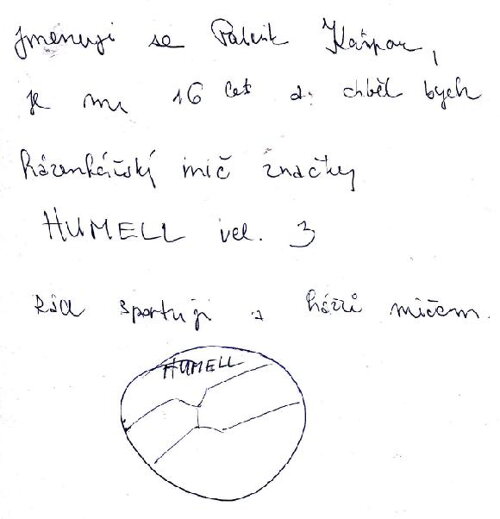 Jmenuji se Patrik Kašpar,
je mi 16 let a chtěl bych
házenkářský míč značky
HUMELL vel. 3
Rád sportuji a háži míčem.
HUMELL